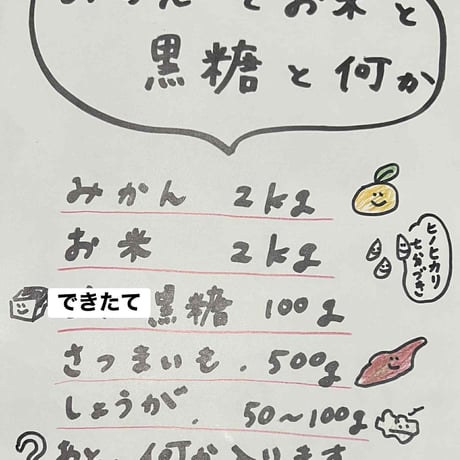 みかんとお米と
黒糖と何か
みかん 2kg
お米 2kg
ヒノヒカリ
七分づき
できたて 黒糖 100g
さつまいも. 500g
しょうが. 50〜100g
? あと…何か入ります